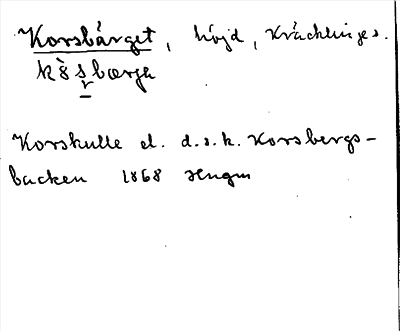 Korsbärget, höjd, Kräcklinge s.
kòsbærga
Korskulle el. d.s.k. Korsbergs-
backen 1868